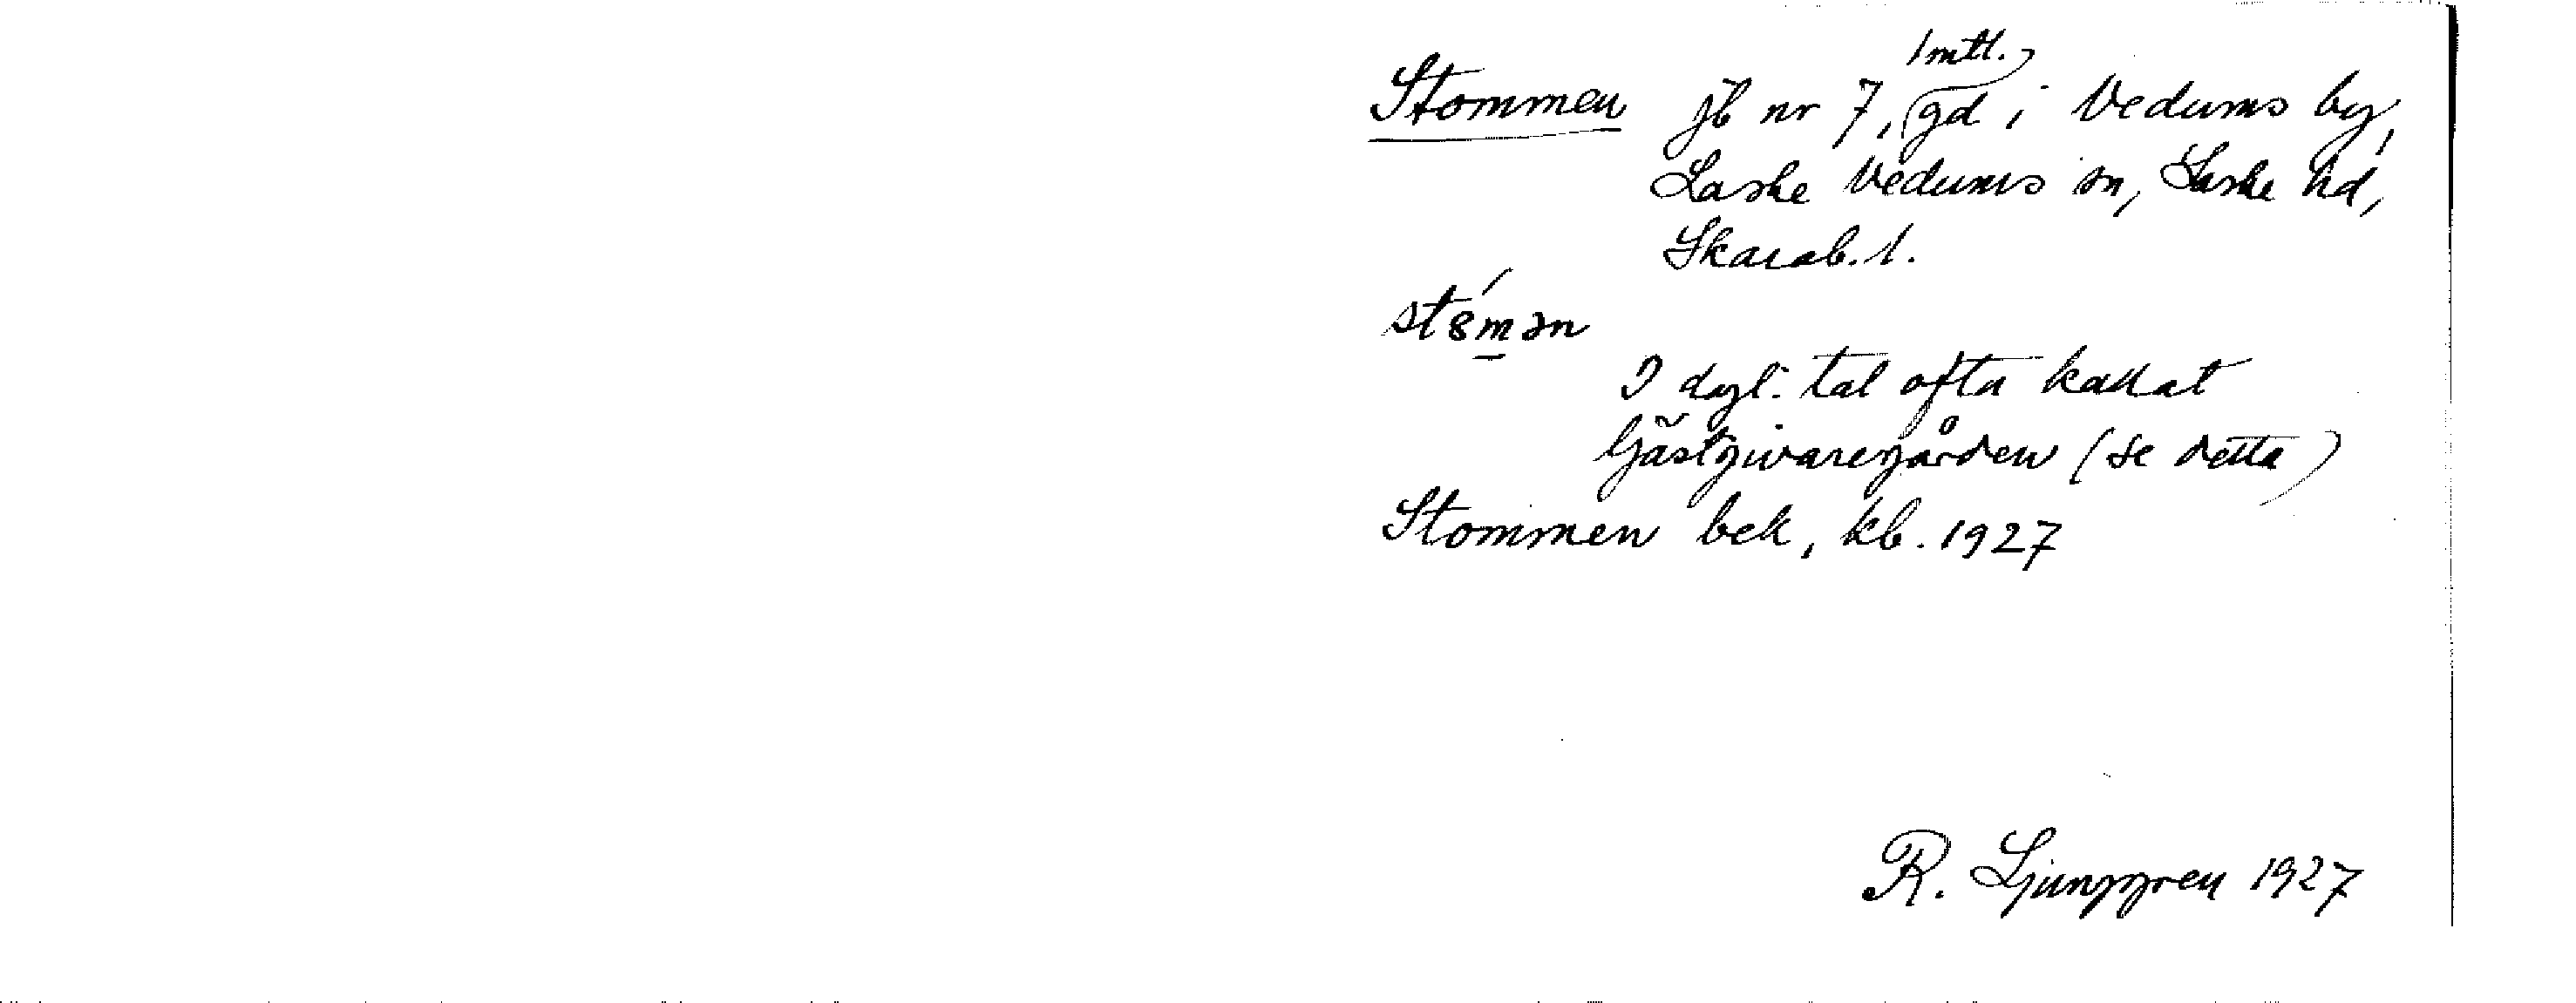 1 mtl.
Stommen jb nr 7, gd i Vedums by,
Laske Vedums sn, Laske hd,
Skarab. l.
st8́m̲ən
I dagl. tal ofta kallat
Gästgivaregården (se detta)
Stommen bek, kb. 1927
R. Ljunggren 1927